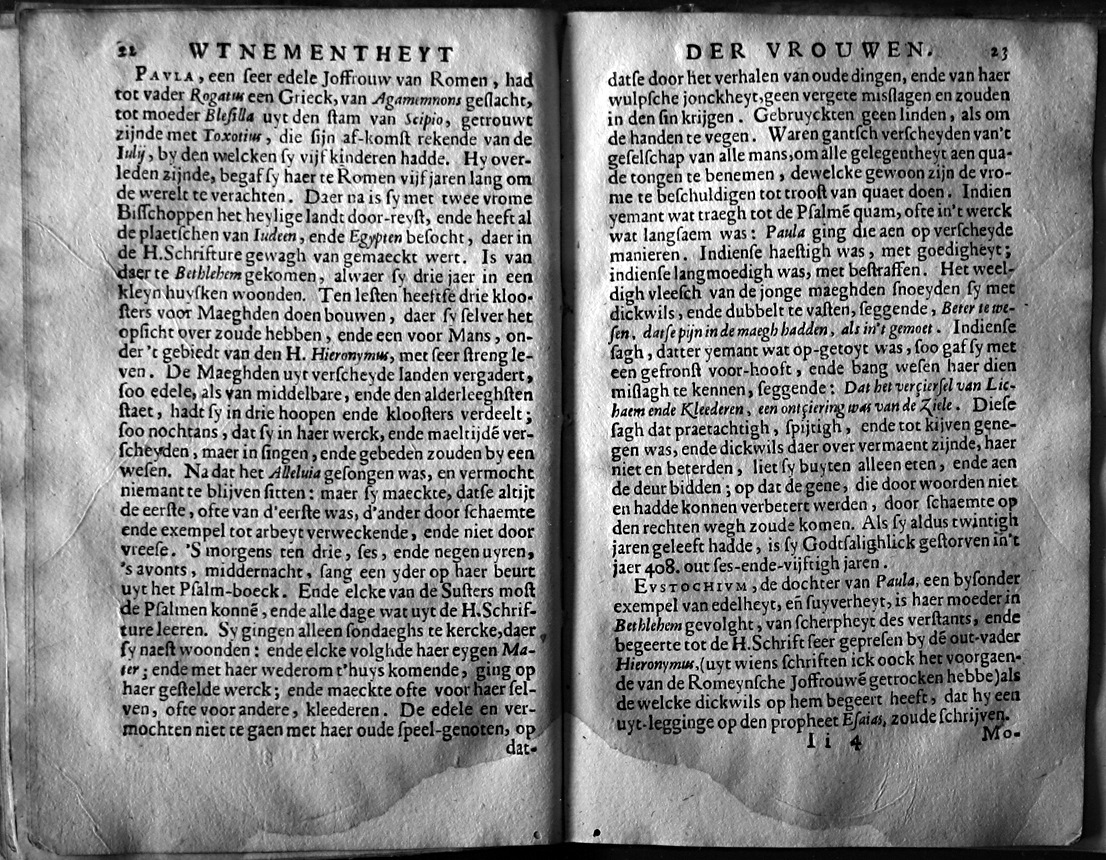 22 WTNEMENTHEYT
PAVLA, een ſeer edele Joffrouw van Romen, had
tot vader Rogatus een Grieck, van Agamemnons geſlacht,
tot moeder Bleſilla uyt den ſtam van Scipio, getrouwt
zijnde met Toxotius, die ſijn af-komſt rekende van de
Iulij, by den welcken ſy vijf kinderen hadde. Hy over-
leden zijnde, begaf ſy haer te Romen vijf jaren lang om
de werelt te verachten. Daer na is ſy met twee vrome
Biſſchoppen het heylige landt door-reyſt, ende heeft al
de plaetſchen van Iudeen, ende Egypten beſocht, daer in
de H.Schrifture gewagh van gemaeckt wert. Is van
daer te Bethlehem gekomen, alwaer ſy drie jaer in een
kleyn huyſken woonden. Ten leſten heeftſe drie kloo-
ſters voor Maeghden doen bouwen, daer ſy ſelver het
opſicht over zoude hebben, ende een voor Mans, on-
der 't gebiedt van den H. Hieronymus, met ſeer ſtreng le-
ven. De Maeghden uyt verſcheyde landen vergadert,
ſoo edele, als van middelbare, ende den alderleeghſten
ſtaet, hadt ſy in drie hoopen ende klooſters verdeelt;
ſoo nochtans, dat ſy in haer werck, ende maeltijdē ver-
ſcheyden, maer in ſingen, ende gebeden zouden by een
weſen. Na dat het Alleluia geſongen was, en vermocht
niemant te blijven ſitten: maer ſy maeckte, datſe altijt
de eerſte, ofte van d'eerſte was, d'ander door ſchaemte
ende exempel tot arbeyt verweckende, ende niet door
vreeſe. 'S morgens ten drie, ſes, ende negen uyren,
's avonts, middernacht, ſang een yder op haer beurt
uyt het Pſalm-boeck. Ende elcke van de Suſters moſt
de Pſalmen konnē, ende alle dage wat uyt de H.Schrif-
ture leeren. Sy gingen alleen ſondaeghs te kercke, daer
ſy naeſt woonden: ende elcke volghde haer eygen Ma-
ter; ende met haer wederom t'huys komende, ging op
haer geſtelde werck; ende maeckte ofte voor haer ſel-
ven, ofte voor andere, kleederen. De edele en ver-
mochten niet te gaen met haer oude ſpeel-genoten, op
dat-
DER VROUWEN. 23
datſe door het verhalen van oude dingen, ende van haer
wulpſche jonckheyt, geen vergete miſſlagen en zouden
in den ſin krijgen. Gebruyckten geen linden, als om
de handen te vegen. Waren gantſch verſcheyden van't
geſelſchap van alle mans, om alle gelegentheyt aen qua-
de tongen te benemen, dewelcke gewoon zijn de vro-
me te beſchuldigen tot trooſt van quaet doen. Indien
yemant wat traegh tot de Pſalmē quam, ofte in't werck
wat langſaem was: Paula ging die aen op verſcheyde
manieren. Indienſe haeſtigh was, met goedigheyt;
indienſe langmoedigh was, met beſtraffen. Het weel-
digh vleeſch van de jonge maeghden ſnoeyden ſy met
dickwils, ende dubbelt te vaſten, ſeggende, Beter te we-
ſen, datſe pijn in de maegh hadden, als in't gemoet. Indienſe
ſagh, datter yemant wat op-getoyt was, ſoo gaf ſy met
een gefronſt voor-hooft, ende bang weſen haer dien
miſlagh te kennen, ſeggende: Dat het verçierſel van Lic-
haem ende Kleederen, een ontçiering was van de Ziele. Dieſe
ſagh dat praetachtigh, ſpijtigh, ende tot kijven gene-
gen was, ende dickwils daer over vermaent zijnde, haer
niet en beterden, liet ſy buyten alleen eten, ende aen
de deur bidden; op dat de gene, die door woorden niet
en hadde konnen verbetert werden, door ſchaemte op
den rechten wegh zoude komen. Als ſy aldus twintigh
jaren geleeft hadde, is ſy Godtſalighlick geſtorven in't
jaer 408. out ſes-ende-vijftigh jaren.
EVSTOCHIVM, de dochter van Paula, een byſonder
exempel van edelheyt, eñ ſuyverheyt, is haer moeder in
Bethlehem gevolght, van ſcherpheyt des verſtants, ende
begeerte tot de H.Schrift ſeer gepreſen by dē out-vader
Hieronymus, (uyt wiens ſchriften ick oock het voorgaen-
de van de Romeynſche Joffrouwē getrocken hebbe) als
de welcke dickwils op hem begeert heeft, dat hy een
uyt-legginge op den propheet Eſaias, zoude ſchrijven.
Ii 4 Mo-